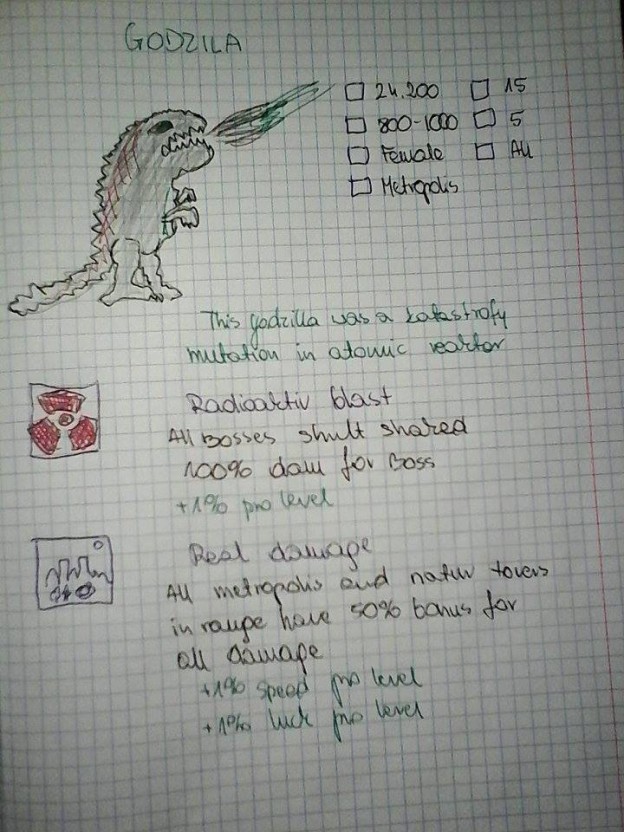 GODZILA
24.200 15
800-1000 5
Female All
Metropolis
This godzilla was a katastrofy
mutation in atomic reactor
Radioactiv blast
All bosses shult shared
100% dam for Boss
+1% pro level
Real damage
All metropolis and natur towers
in range have 50% bonus for
all damage
+1% speed pro level
+1% luck pro level